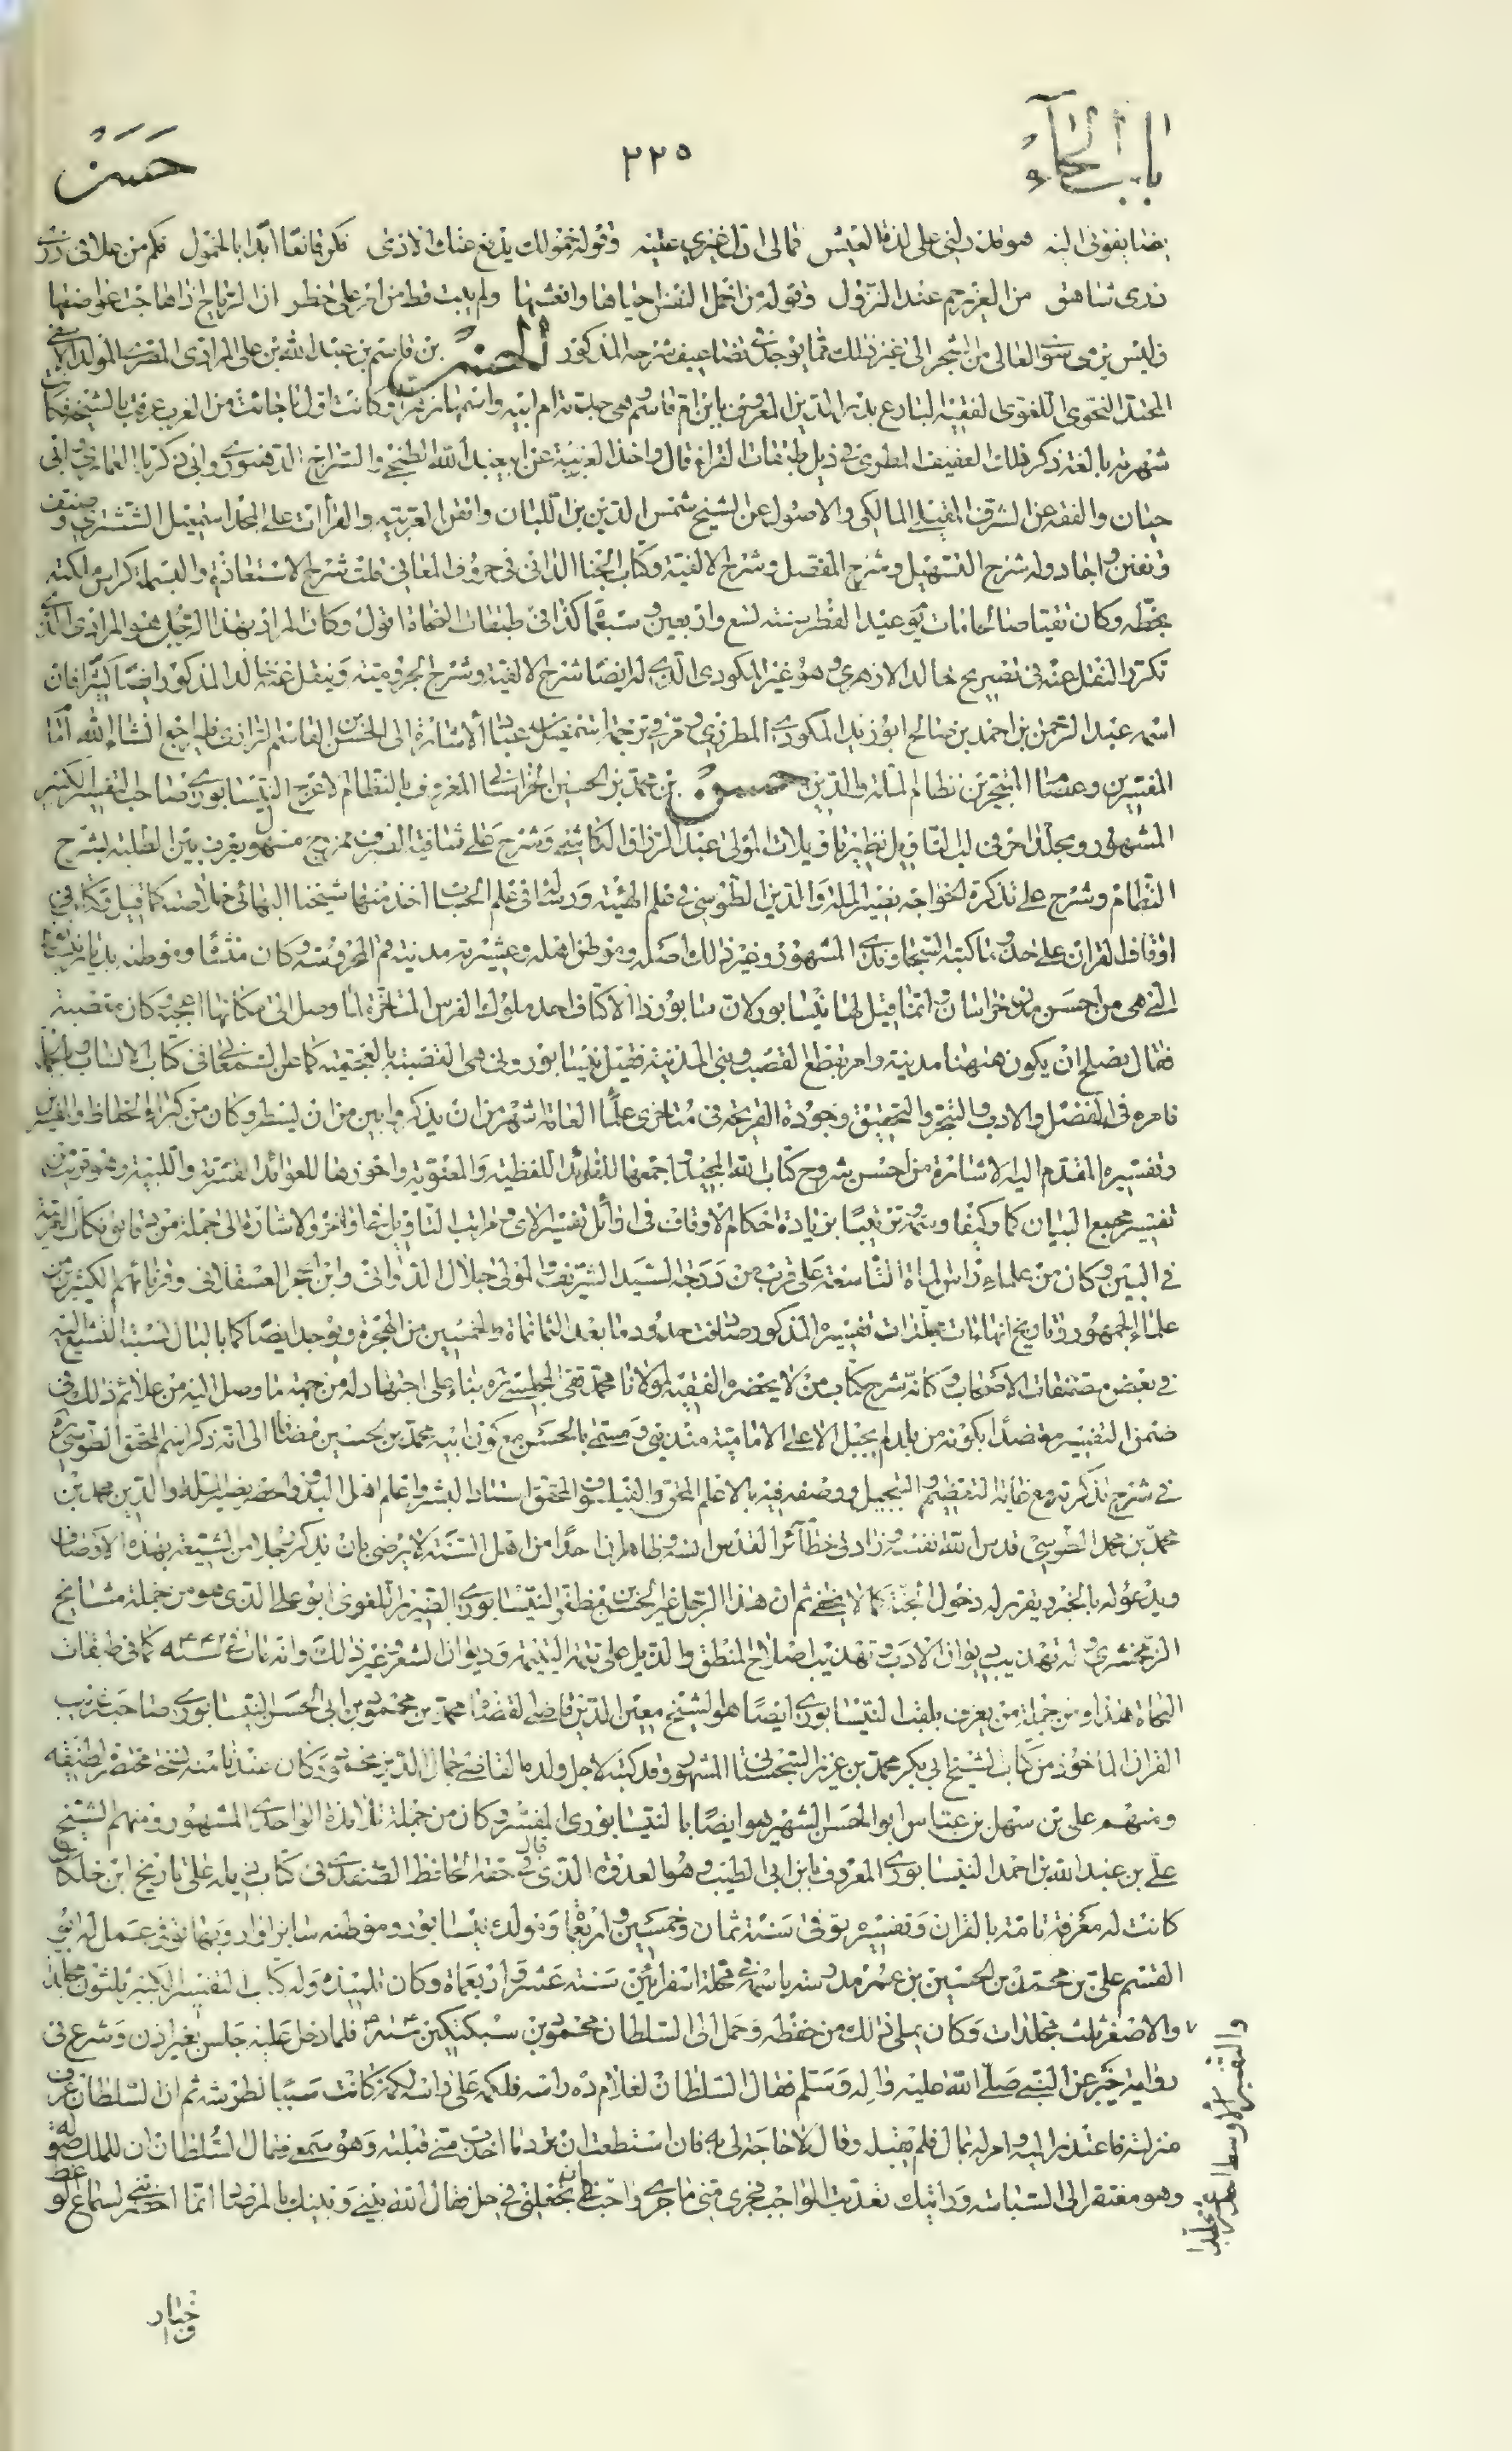 باب الحاء
٢٢٥
حسن
فليس يرمى سوى العالي من الشجر الى غير ذلك مما يوجد في تضاعيف شرحه المذكور الحسن بن قاسم بن عبد الله بن علي المرادي المصري المولد
المحتد النحوي اللغوي الفقيه البارع بدر الدين المعروف بابن ام قاسم وهي جدته ام ابيه واسمها زهراء وكانت اول ما جائت من الغرب عرفت بالشيخة فكانت
شهرته تابعة ذكر ذلك العفيف المطري في ذيل طبقات القراء قال واخذ العربية عن ابي عبد الله الطنجي والسراج الدمنهوري وابي زكريا الغماري وابي
حيان والفقه عن الشرف المالكي والاصول عن الشيخ شمس الدين بن اللبان واتقن العربية والقراءات على المجد اسمعيل الششتري وصنف
وتفنن واجاد وله شرح التسهيل وشرح المفصل وشرح الالفية وكتاب الجنا الداني في حروف المعاني قلت شرح الاستعاذة والبسملة كراس ملكته
بخطه وكان تقيا صالحا مات يوم عيد الفطر سنة تسع واربعين وسبعمأة كذا في طبقات النحاة اقول وكان المراد بهذا الرجل هو المرادي الذي
تكرر النقل عنه في تصريح خالد الازهري وهو غير المكودي الذي له ايضا شرح الالفية وشرح الجرومية وينقل عنه خالد المذكور ايضا كثيرا فان
اسمه عبد الرحمن بن احمد بن صالح ابو زيد المكودي المطرزي ومر في ترجمة اسمعيل بن عباد الاشارة الى الحسن بن القاسم الرازي فليراجع انشاء الله
المفسرين وعصام المتبحرين نظام الملة والدين حسن بن محمد بن الحسين الخراساني المعروف بالنظام الاعرج النيسابوري صاحب التفسير الكبير
المشهور ومجلد اخر في لب التاويل نظير تاويلات المولى عبد الرزاق الكاشي وشرح على شافية الصرف ممزوج مشهور يعرف بين الطلبة بشرح
النظام وشرح على تذكرة الخواجه نصير الملة والدين الطوسي في علم الهيئة ورسالة في علم الحساب اخذ منها شيخنا البهائي خلاصته كما قيل وكتاب في
اوقاف القران على حذو ما كتبه السجاوندي المشهور وغير ذلك اصله وموطن اهله وعشيرته مدينة قم المحروسة وكان منشأه وموطنه بديار نيشابور
التي هي من احسن مدن خراسان انما قيل لها نيسابور لان سابور ذا الاكتاف احد ملوك الفرس المتاخرة لما وصل الى مكانها اعجبه وكان مقصبة
فقال يصلح ان يكون ههنا مدينة وامر بقطع القصب وبنى المدينة فقيل نيسابور وني هي القصبة بالعجمية كما عن السمعاني في كتاب الانساب وبالجملة
فامره في الفضل والادب والتبحر والتحقيق وجودة القريحة في متاخري علماء العامة اشهر من ان يذكر وابين من ان يسطر وكان من كبراء الحفاظ والمفسرين
وتفسيره المقدم اليه الاشارة من احسن شروح كتاب الله المجيد واجمعها للفوائد اللفظية والمعنوية واحوزها للعوائد القشرية واللبية وهو قريب من
تفسير مجمع البيان كما وكيفا وسمة وترتيبا بزيادة احكام الاوقاف في اوائل تفسير الاي ومراتب التاويل في اواخره والاشارة الى جملة من دقائق نكات العربية
في البين وكان من علماء راس المأة التاسعة على قرب من درجة السيد الشريف والمولى جلال الدواني وابن حجر العسقلاني وقرنائهم الكثيرين من
علماء الجمهور وتاريخ انهاءات مجلدات تفسيره المذكور صادفت حدود ما بعد الثمانمأة والخمسين من الهجرة ويوجد ايضا كما بالبال نسبة التشيع اليه
في بعض مصنفات الاصحاب وكانه شرح كتاب من لا يحضره الفقيه لمولانا محمد تقي المجلسي ره بناء على اجتهاد له من جهة ما وصل اليه من علائم ذلك في
ضمن التفسير معتضدا بكونه من بلد لم يحبل الا على الامامية متديني ومسمى بالحسن مع كون ابيه محمد بن حسين مضافا الى انه ذكر اسم المحقق الطوسي ره
في شرح تذكرته مع غاية التعظيم والتبجيل ووصفه فيه بالاعلم المحق والفيلسوف المحقق استاد البشر واعلم اهل البدو والحضر نصير الملة والدين محمد بن
محمد بن محمد الطوسي قدس الله نفسه وزاد في حظائر القدس انسه وظاهر ان احدا من اهل السنة لا يرضى بان يذكر رجلا من الشيعة بهذه الاوصاف
ويدعو له بالخير ويقرر له دخول الجنة كما لا يخفى ثم ان هذا الرجل غير الحسن بن مظفر النيسابوري الضرير اللغوي ابو علي الذي هو من جملة مشايخ
الزمخشري وله تهذيب ديوان الادب وتهذيب اصلاح المنطق والذيل على تتمة اليتيمة وديوان الشعر وغير ذلك وانه مات سنة ٤٤٢ كما في طبقات
النحاة هذا ومن جملة من يعرف بلقب النيسابوري ايضا هو الشيخ معين الدين قاضي القضاة محمد بن محمود بن ابي الحسن النيسابوري صاحب غريب
القران الماخوذ من كتاب الشيخ ابي بكر محمد بن عزيز السجستاني المشهور وقد كتبه لاجل ولده القاضي جمال الدين محمود وكان عندنا منه نسخة مختصرة لطيفة
ومنهم علي بن سهل بن عباس ابو الحسن الشهير هو ايضا بالنيسابوري المفسر وكان من جملة تلامذة الواحدي المشهور ومنهم الشيخ
علي بن عبد الله بن احمد النيسابوري المعروف بابن ابي الطيب وهو العدوة الذي قال في حقه الحافظ الصفدي في كتاب ذيله على تاريخ ابن خلكان
كانت له معرفة تامة بالقران وتفسيره توفي سنة ثمان وخمسين واربعمأة ومولده نيسابور وموطنه سابزوار وبها توفي عمل له ابو
القسم علي بن محمد بن الحسين بن عمر مدرسة باسمه في محلة اسفرائين سنة عشر واربعمأة وكان تلميذه وله كتاب التفسير الكبير ثلثون مجلدا
والتفسير الاوسط احد عشر مجلدا
والاصغر ثلث مجلدات وكان يملي ذلك من حفظه وحمل الى السلطان محمود بن سبكتكين سنة فلما دخل عليه جلس بغير اذن وشرع في
رواية خبر عن النبي صلى الله عليه واله وسلم فقال السلطان لغلام ده راسه فلكمه على راسه لكمة كانت سببا لطرشه ثم ان السلطان عرف
منزلته فاعتذر اليه وامر له بمال فلم يقبله وقال لا حاجة لي به فان استطعت ان ترد ما اخذت مني قبلته وهو سمعي فقال السلطان ان للملك صولة
وهو مفتقر الى السياسة ورايتك تعديت الواجب فجرى مني ما جرى واحب ان تجعلني في حل فقال الله بيني وبينك بالمرصاد انما احضرتني لسماع الوعظ
واخبار